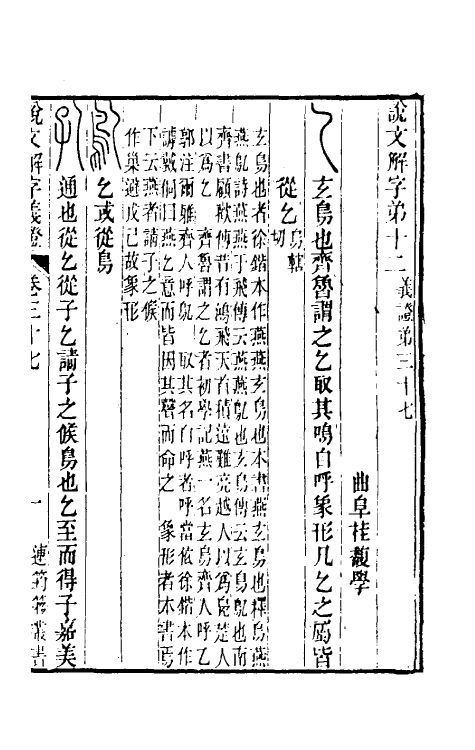 說文解字弟十二 義證弟三十七
曲阜桂馥學
玄鳥也齊魯謂之乙取其鳴自呼象形凡乙之屬皆
從乙烏轄切
玄鳥也者徐鍇本作燕燕玄鳥也本書燕玄鳥也釋鳥燕
燕鳦詩燕燕于飛傳云燕燕鳦也玄鳥傳云玄鳥鳦也南
齊書顧歡傳昔有鴻飛天首積遠難亮越人以爲鳧楚人
以爲乙 齊魯謂之乙者初學記燕一名玄鳥齊人呼乙
郭注爾雅齊人呼鳦 取其名自呼者呼當依徐鍇本作
謼戴侗曰燕乙意而皆因其聲而命之 象形者本書焉
下云燕者請子之候
作巢避戊己故象形
乙或從鳥
通也從乙從子乙請子之候鳥也乙至而得子嘉美
說文解字義證 卷三十七 一 連筠簃叢書